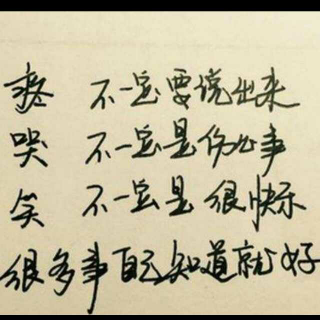 疼 不一定要说出来
哭 不一定是伤心事
笑 不一定是很快乐
很多事自己知道就好